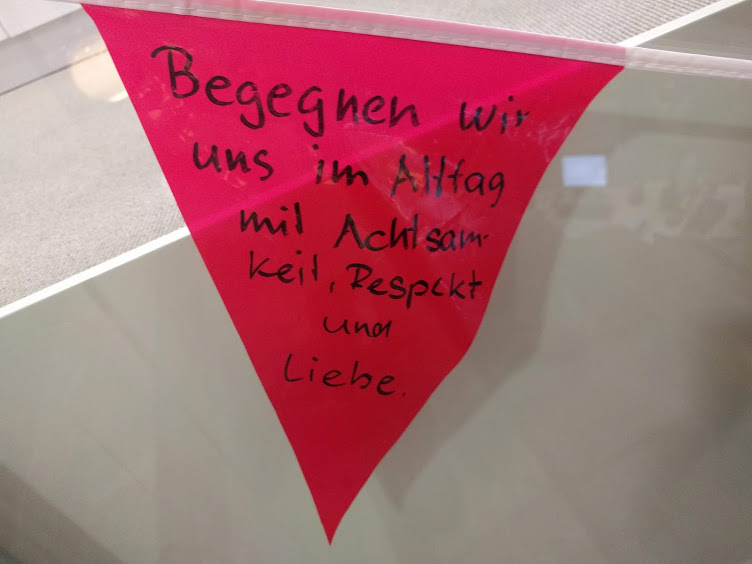 Begegnen wir
uns im Alltag
mit Achtsam-
keit, Respekt
und
Liebe.